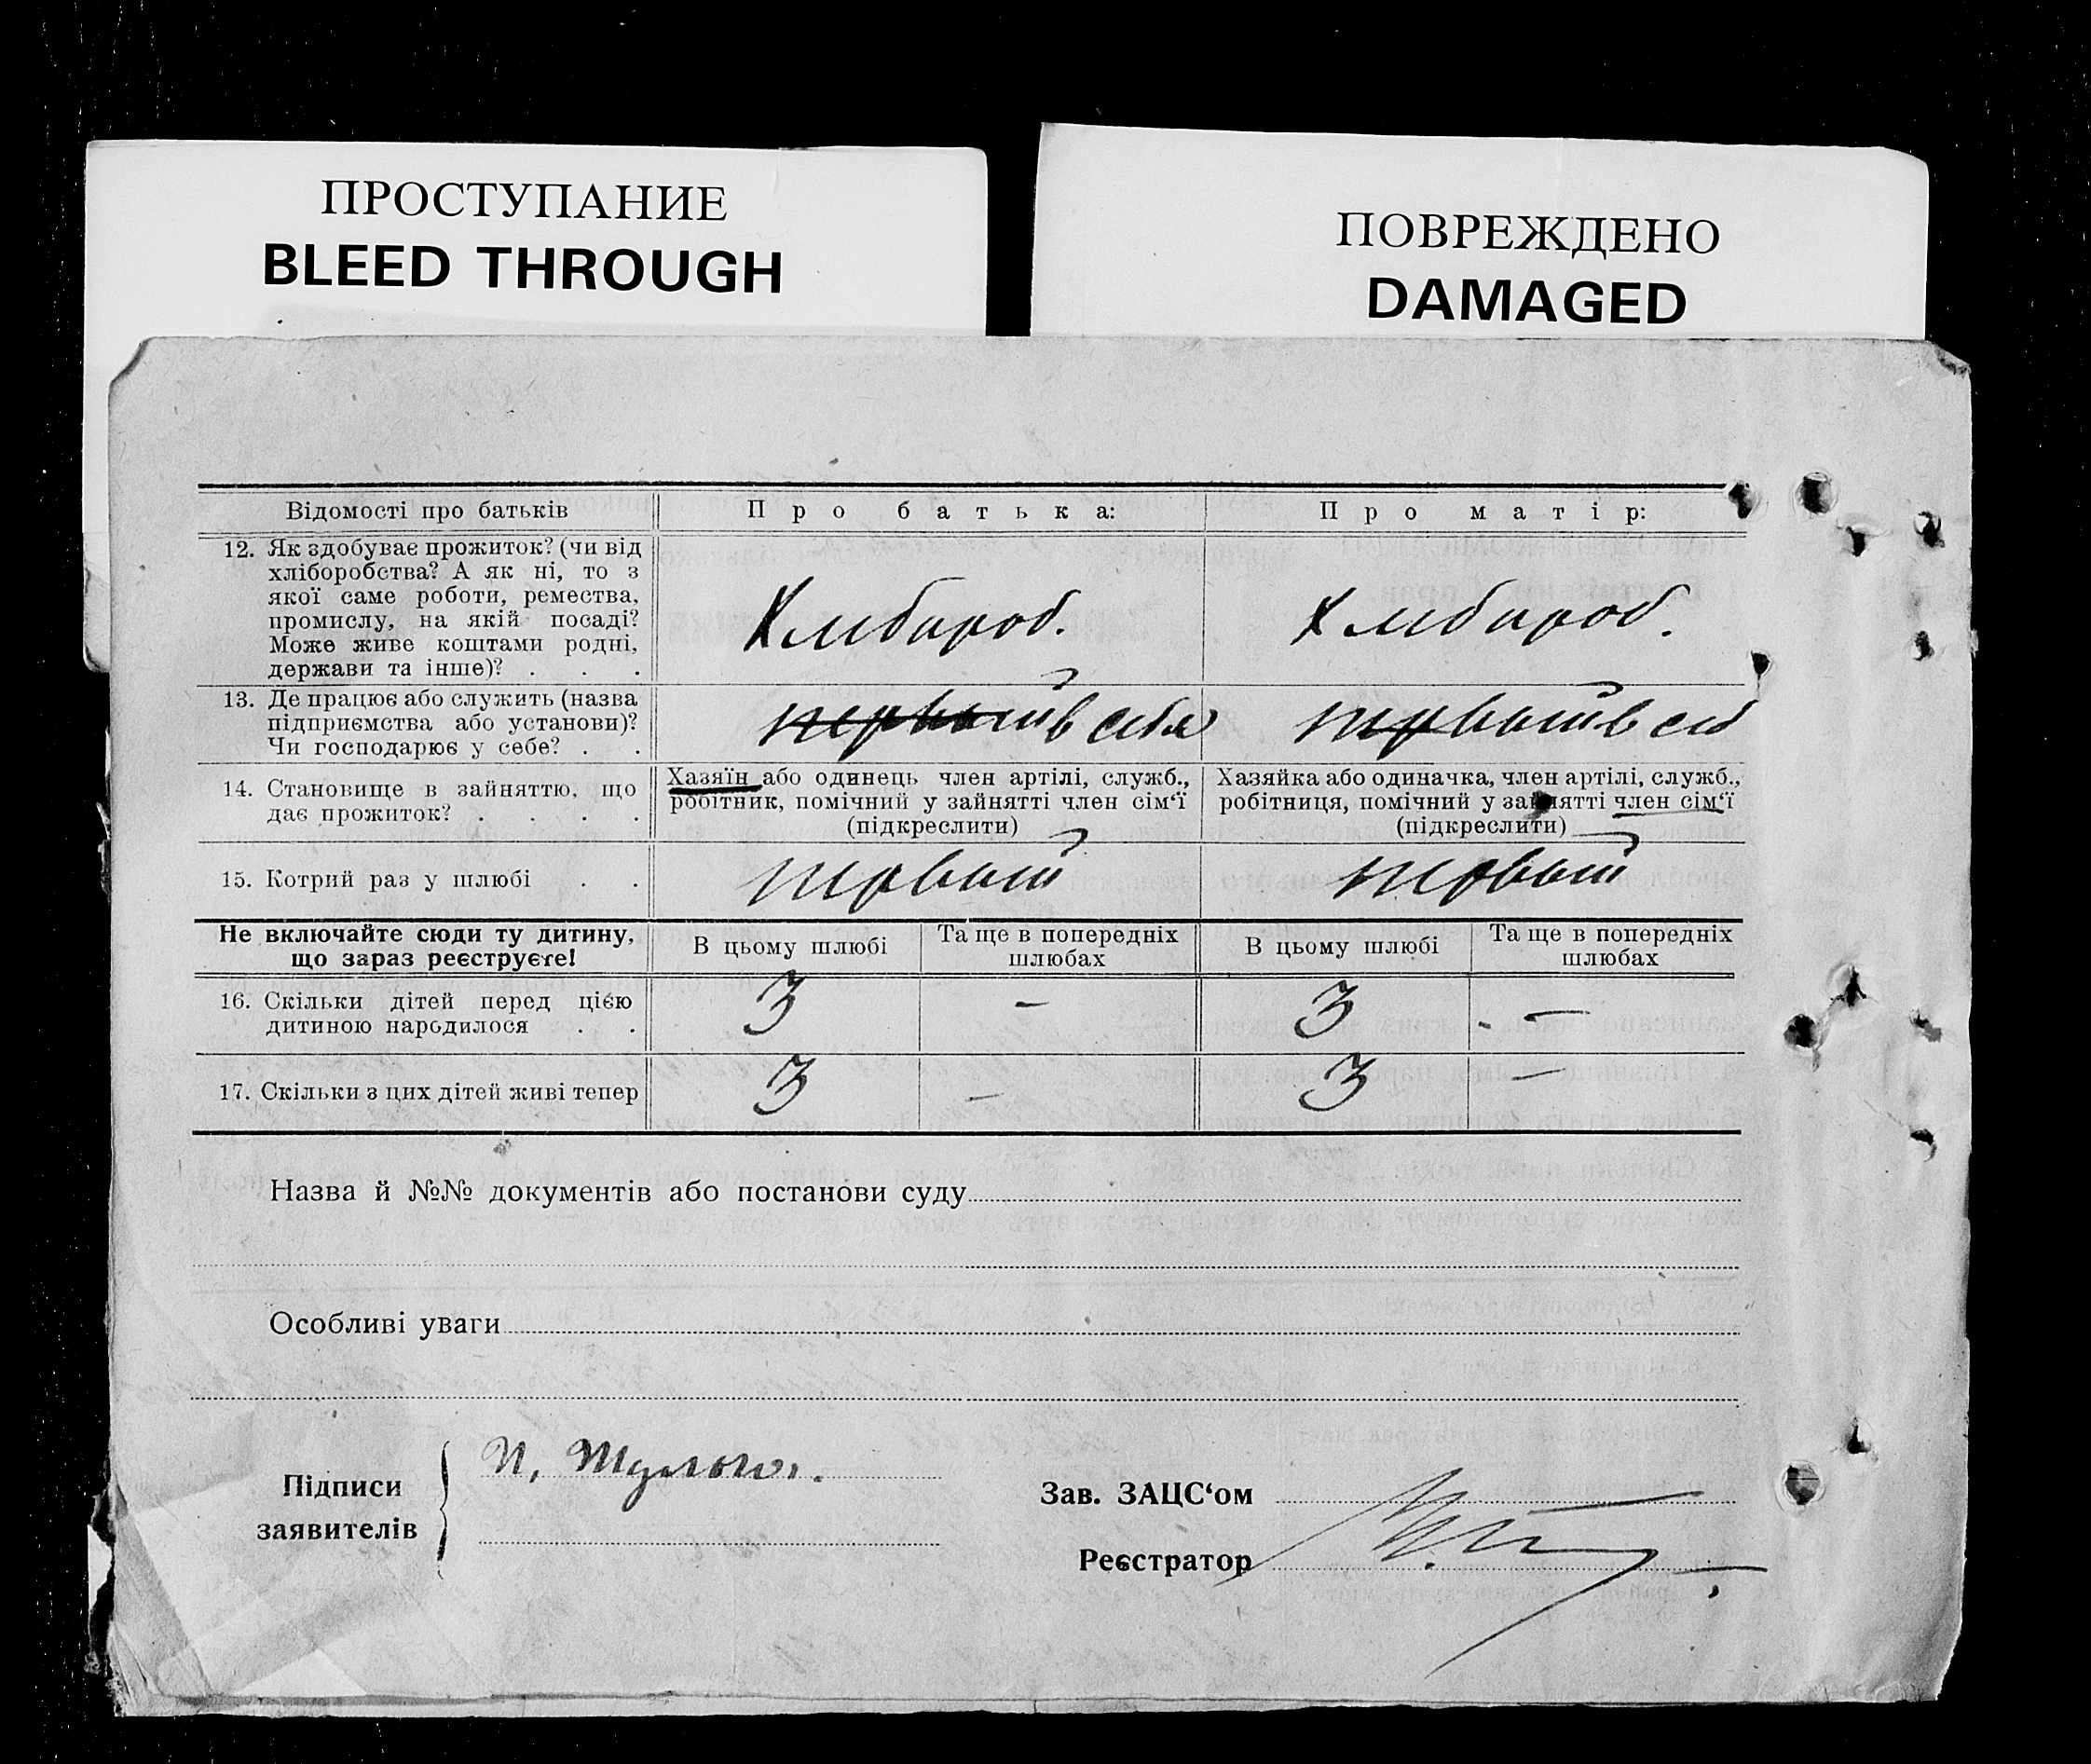 ПРОСТУПАНИЕ
BLEED THROUGH
ПОВРЕЖДЕНО
DAMAGED
Відомості про батьків
Про батька:
Про матір:
12. Як здобуває прожиток? (чи від
хліборобства? А як ні, то з
якої саме роботи, ремества,
промислу, на якій посаді?
Може живе коштами родні,
держави та інше)? . . .
Хлибороб.
Хлибороб.
13. Де працює або служить (назва
підприємства або установи)?
Чи господарює у себе? . .
первый в себя
первый в себ
14. Становище в зайняттю, що
дає прожиток? . . . .
Хазяїн або одинець член артілі, служб.,
робітник, помічний у зайнятті член сім‘ї
(підкреслити)
Хазяйка або одиначка, член артілі, служб.,
робітниця, помічний у зайнятті член сім‘ї
(підкреслити)
15. Котрий раз у шлюбі . .
первый
первый
Не включайте сюди ту дитину,
що зараз реєструєте!
В цьому шлюбі
Та ще в попередніх
шлюбах
В цьому шлюбі
Та ще в попередніх
шлюбах
16. Скільки дітей перед цією
дитиною народилося . .
3
—
3
—
17. Скільки з цих дітей живі тепер
3
—
3
—
Назва й №№ документів або постанови суду
Особливі уваги
Підписи
заявителів
Зав. ЗАЦС‘ом
Реєстратор